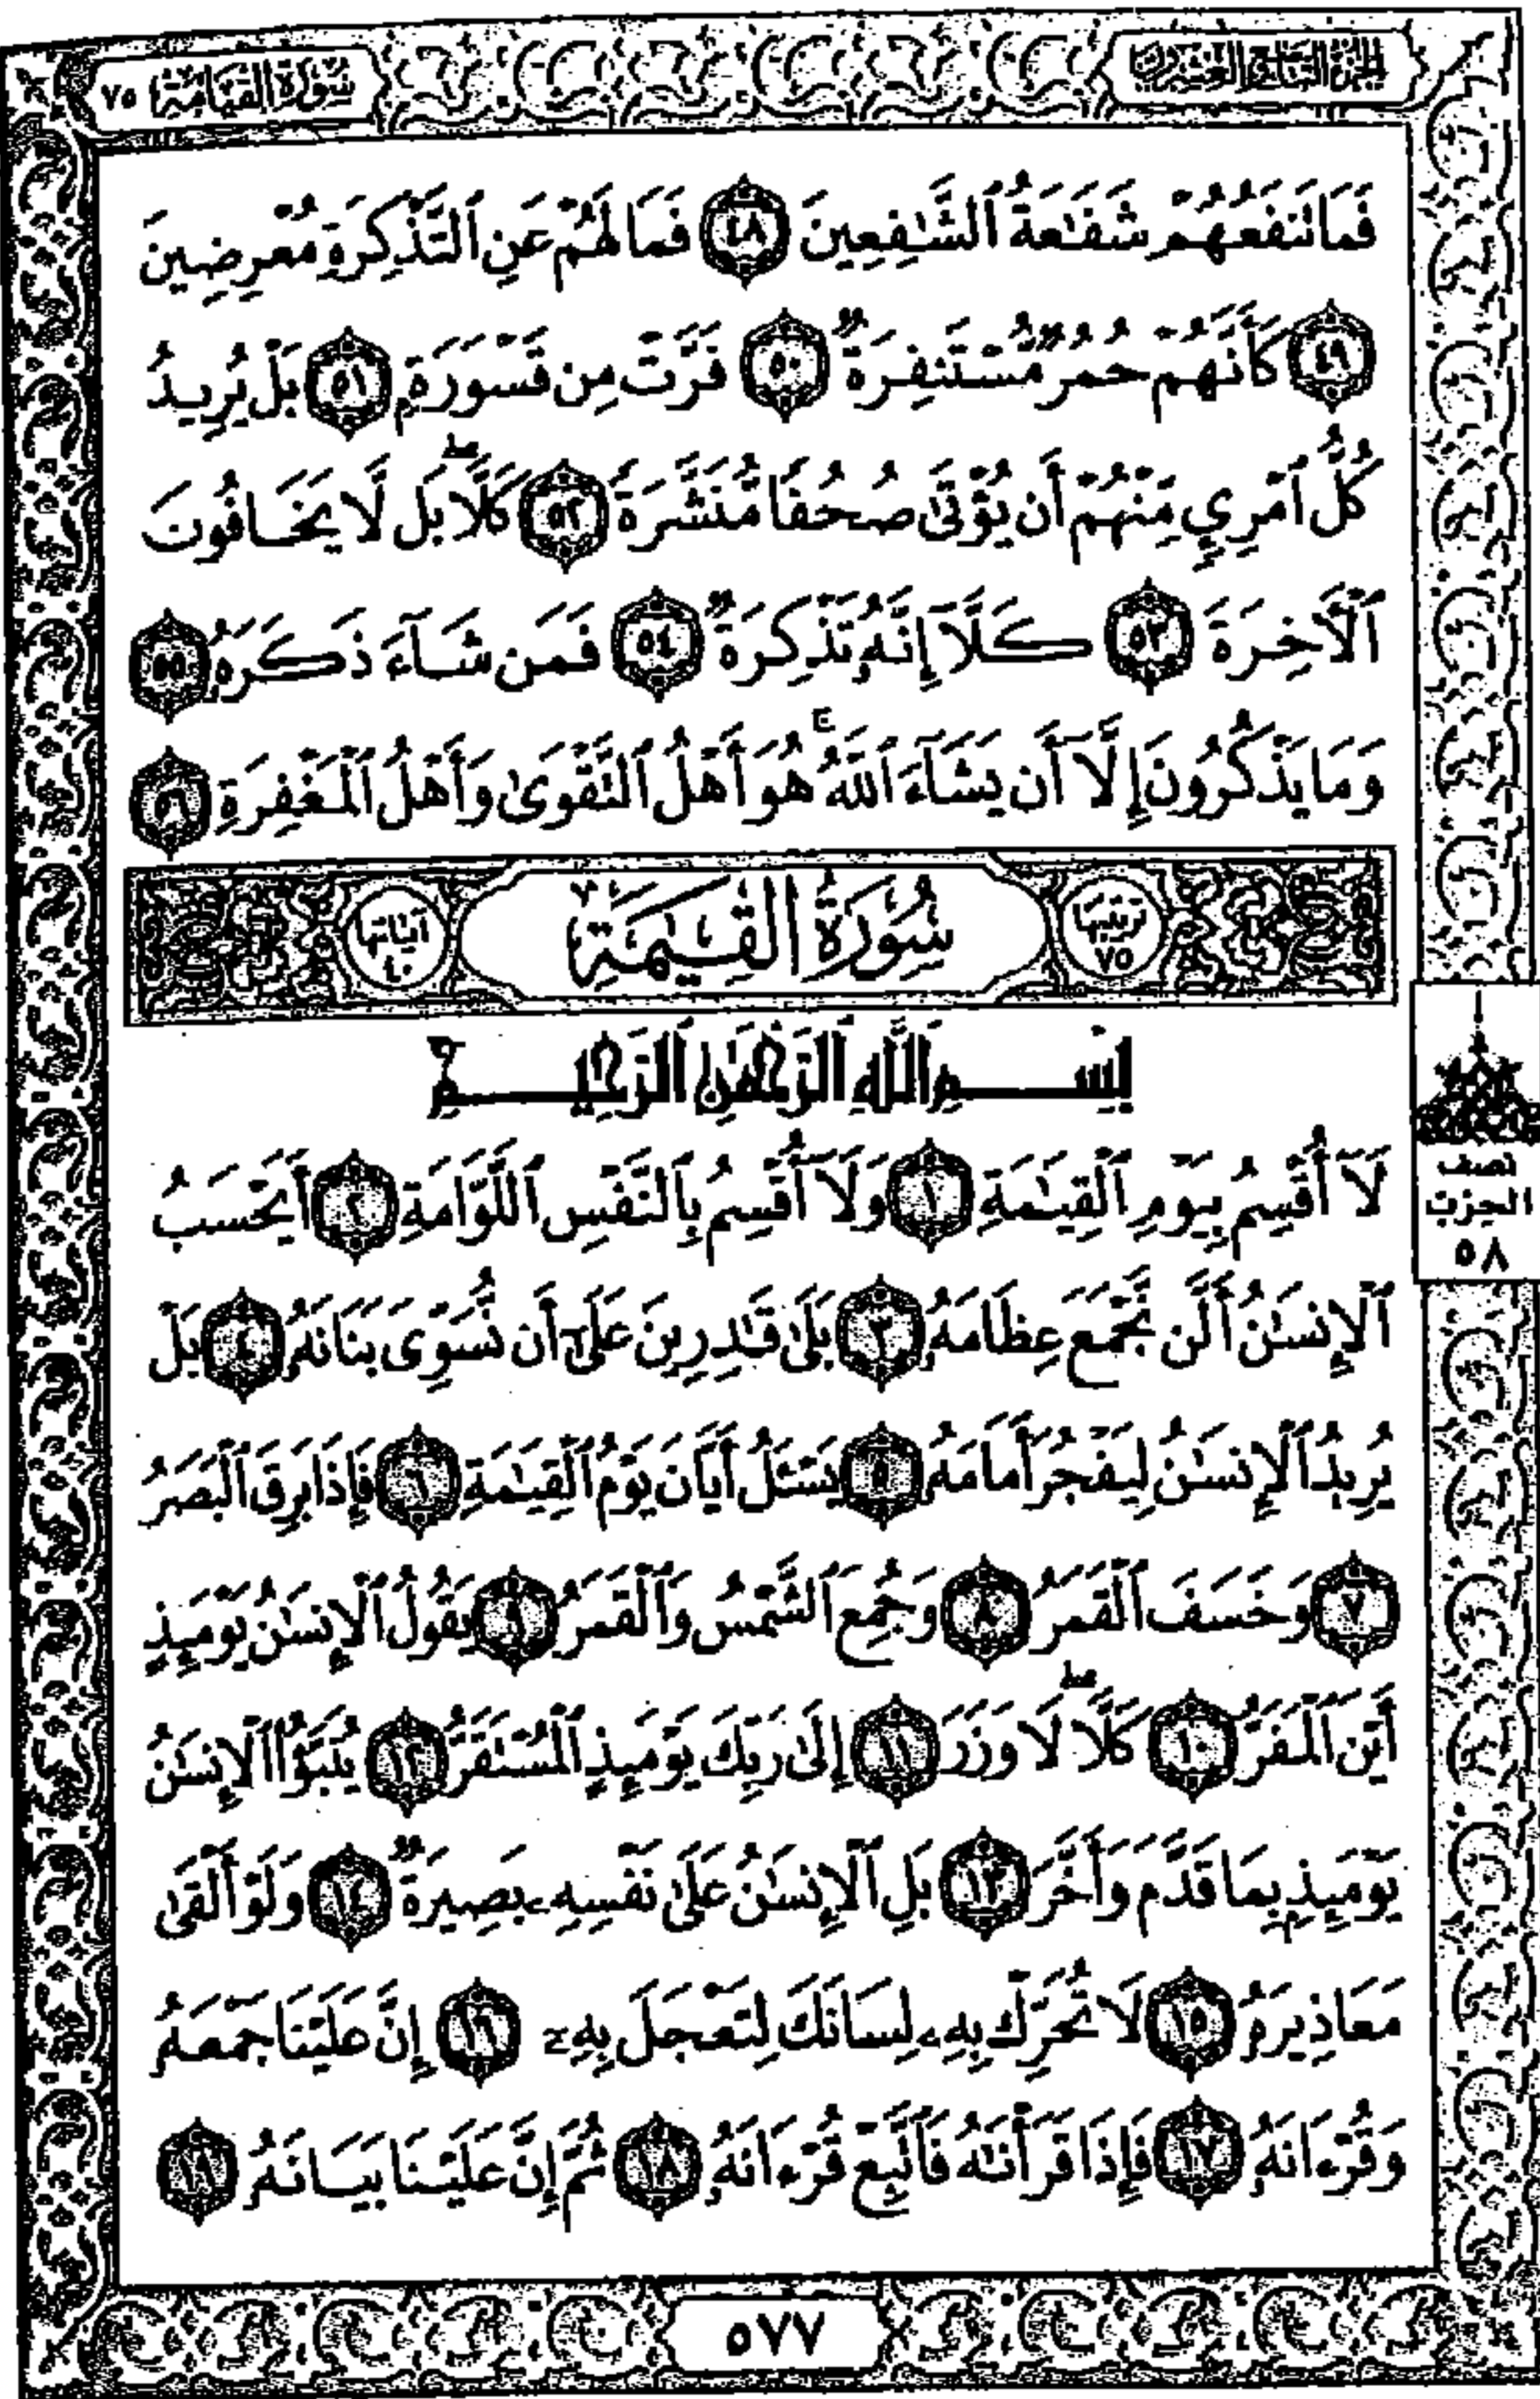 الجزء التاسع والعشرون
سورة القيامة ٧٥
فَمَا تَنفَعُهُمْ شَفَٰعَةُ ٱلشَّٰفِعِينَ ٤٨ فَمَا لَهُمْ عَنِ ٱلتَّذْكِرَةِ مُعْرِضِينَ
٤٩ كَأَنَّهُمْ حُمُرٌ مُّسْتَنفِرَةٌ ٥٠ فَرَّتْ مِن قَسْوَرَةٍۭ ٥١ بَلْ يُرِيدُ
كُلُّ ٱمْرِئٍ مِّنْهُمْ أَن يُؤْتَىٰ صُحُفًا مُّنَشَّرَةً ٥٢ كَلَّاۖ بَل لَّا يَخَافُونَ
ٱلْأَخِرَةَ ٥٣ كَلَّآ إِنَّهُۥ تَذْكِرَةٌ ٥٤ فَمَن شَآءَ ذَكَرَهُۥ ٥٥
وَمَا يَذْكُرُونَ إِلَّآ أَن يَشَآءَ ٱللَّهُۚ هُوَ أَهْلُ ٱلتَّقْوَىٰ وَأَهْلُ ٱلْمَغْفِرَةِ ٥٦
ترتيبها ٧٥ سُورَةُ القِيَٰمَةِ آياتها ٤٠
بِسْمِ ٱللَّهِ ٱلرَّحْمَٰنِ ٱلرَّحِيمِ
لَآ أُقْسِمُ بِيَوْمِ ٱلْقِيَٰمَةِ ١ وَلَآ أُقْسِمُ بِٱلنَّفْسِ ٱللَّوَّامَةِ ٢ أَيَحْسَبُ
ٱلْإِنسَٰنُ أَلَّن نَّجْمَعَ عِظَامَهُۥ ٣ بَلَىٰ قَٰدِرِينَ عَلَىٰٓ أَن نُّسَوِّىَ بَنَانَهُۥ ٤ بَلْ
يُرِيدُ ٱلْإِنسَٰنُ لِيَفْجُرَ أَمَامَهُۥ ٥ يَسْـَٔلُ أَيَّانَ يَوْمُ ٱلْقِيَٰمَةِ ٦ فَإِذَا بَرِقَ ٱلْبَصَرُ
٧ وَخَسَفَ ٱلْقَمَرُ ٨ وَجُمِعَ ٱلشَّمْسُ وَٱلْقَمَرُ ٩ يَقُولُ ٱلْإِنسَٰنُ يَوْمَئِذٍ
أَيْنَ ٱلْمَفَرُّ ١٠ كَلَّاۖ لَا وَزَرَ ١١ إِلَىٰ رَبِّكَ يَوْمَئِذٍ ٱلْمُسْتَقَرُّ ١٢ يُنَبَّؤُا۟ ٱلْإِنسَٰنُ
يَوْمَئِذٍۭ بِمَا قَدَّمَ وَأَخَّرَ ١٣ بَلِ ٱلْإِنسَٰنُ عَلَىٰ نَفْسِهِۦ بَصِيرَةٌ ١٤ وَلَوْ أَلْقَىٰ
مَعَاذِيرَهُۥ ١٥ لَا تُحَرِّكْ بِهِۦ لِسَانَكَ لِتَعْجَلَ بِهِۦٓ ١٦ إِنَّ عَلَيْنَا جَمْعَهُۥ
وَقُرْءَانَهُۥ ١٧ فَإِذَا قَرَأْنَٰهُ فَٱتَّبِعْ قُرْءَانَهُۥ ١٨ ثُمَّ إِنَّ عَلَيْنَا بَيَانَهُۥ ١٩
نصف
الحزب
٥٨
٥٧٧